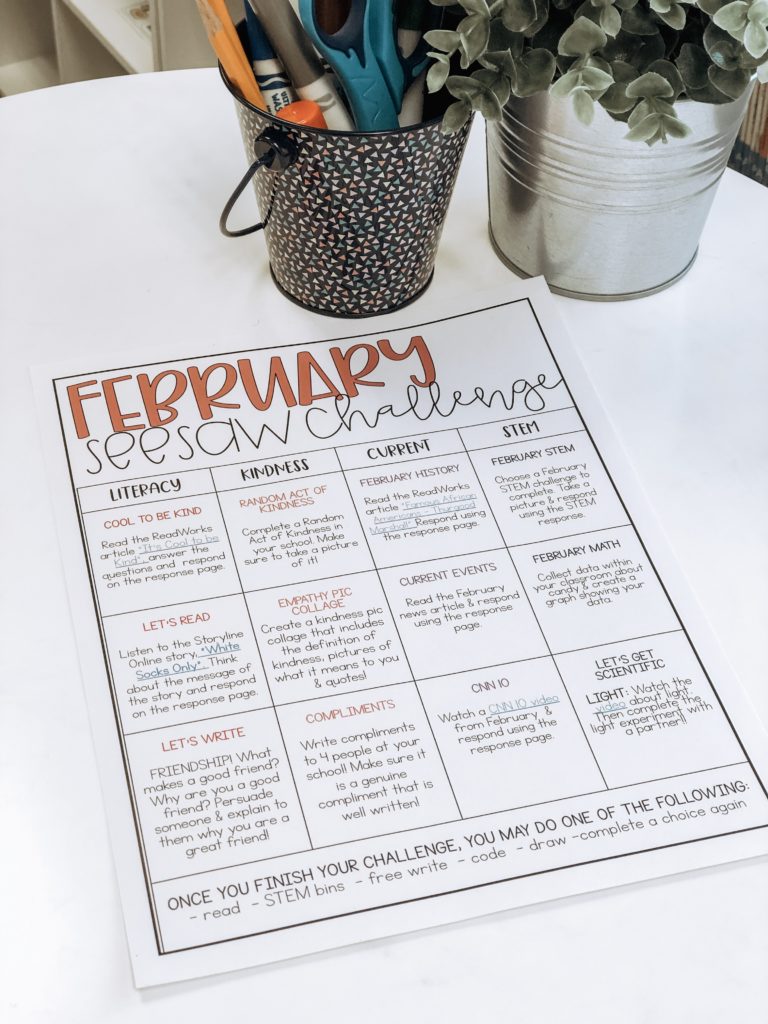 FEBRUARY
seesaw challenge
LITERACY
KINDNESS
CURRENT
STEM
COOL TO BE KIND
Read the ReadWorks
article "It's Cool to be
Kind", answer the
questions and respond
on the response page.
RANDOM ACT OF
KINDNESS
Complete a Random
Act of Kindness in
your school. Make
sure to take a picture
of it!
FEBRUARY HISTORY
Read the ReadWorks
article "Famous African
Americans - Thurgood
Marshall" Respond using
the response page.
FEBRUARY STEM
Choose a February
STEM challenge to
complete. Take a
picture & respond
using the STEM
response.
LET'S READ
Listen to the Storyline
Online story, "White
Socks Only". Think
about the message of
the story and respond
on the response page.
EMPATHY PIC
COLLAGE
Create a kindness pic
collage that includes
the definition of
kindness, pictures of
what it means to you
& quotes!
CURRENT EVENTS
Read the February
news article & respond
using the response
page.
FEBRUARY MATH
Collect data within
your classroom about
candy & create a
graph showing your
data.
LET'S WRITE
FRIENDSHIP! What
makes a good friend?
Why are you a good
friend? Persuade
someone & explain to
them why you are a
great friend!
COMPLIMENTS
Write compliments
to 4 people at your
school! Make sure it
is a genuine
compliment that is
well written!
CNN 10
Watch a CNN 10 video
from February &
respond using the
response page.
LET'S GET
SCIENTIFIC
LIGHT: Watch the
video about light.
Then complete the
light experiment with
a partner!!
ONCE YOU FINISH YOUR CHALLENGE, YOU MAY DO ONE OF THE FOLLOWING:
- read - STEM bins - free write - code - draw -complete a choice again